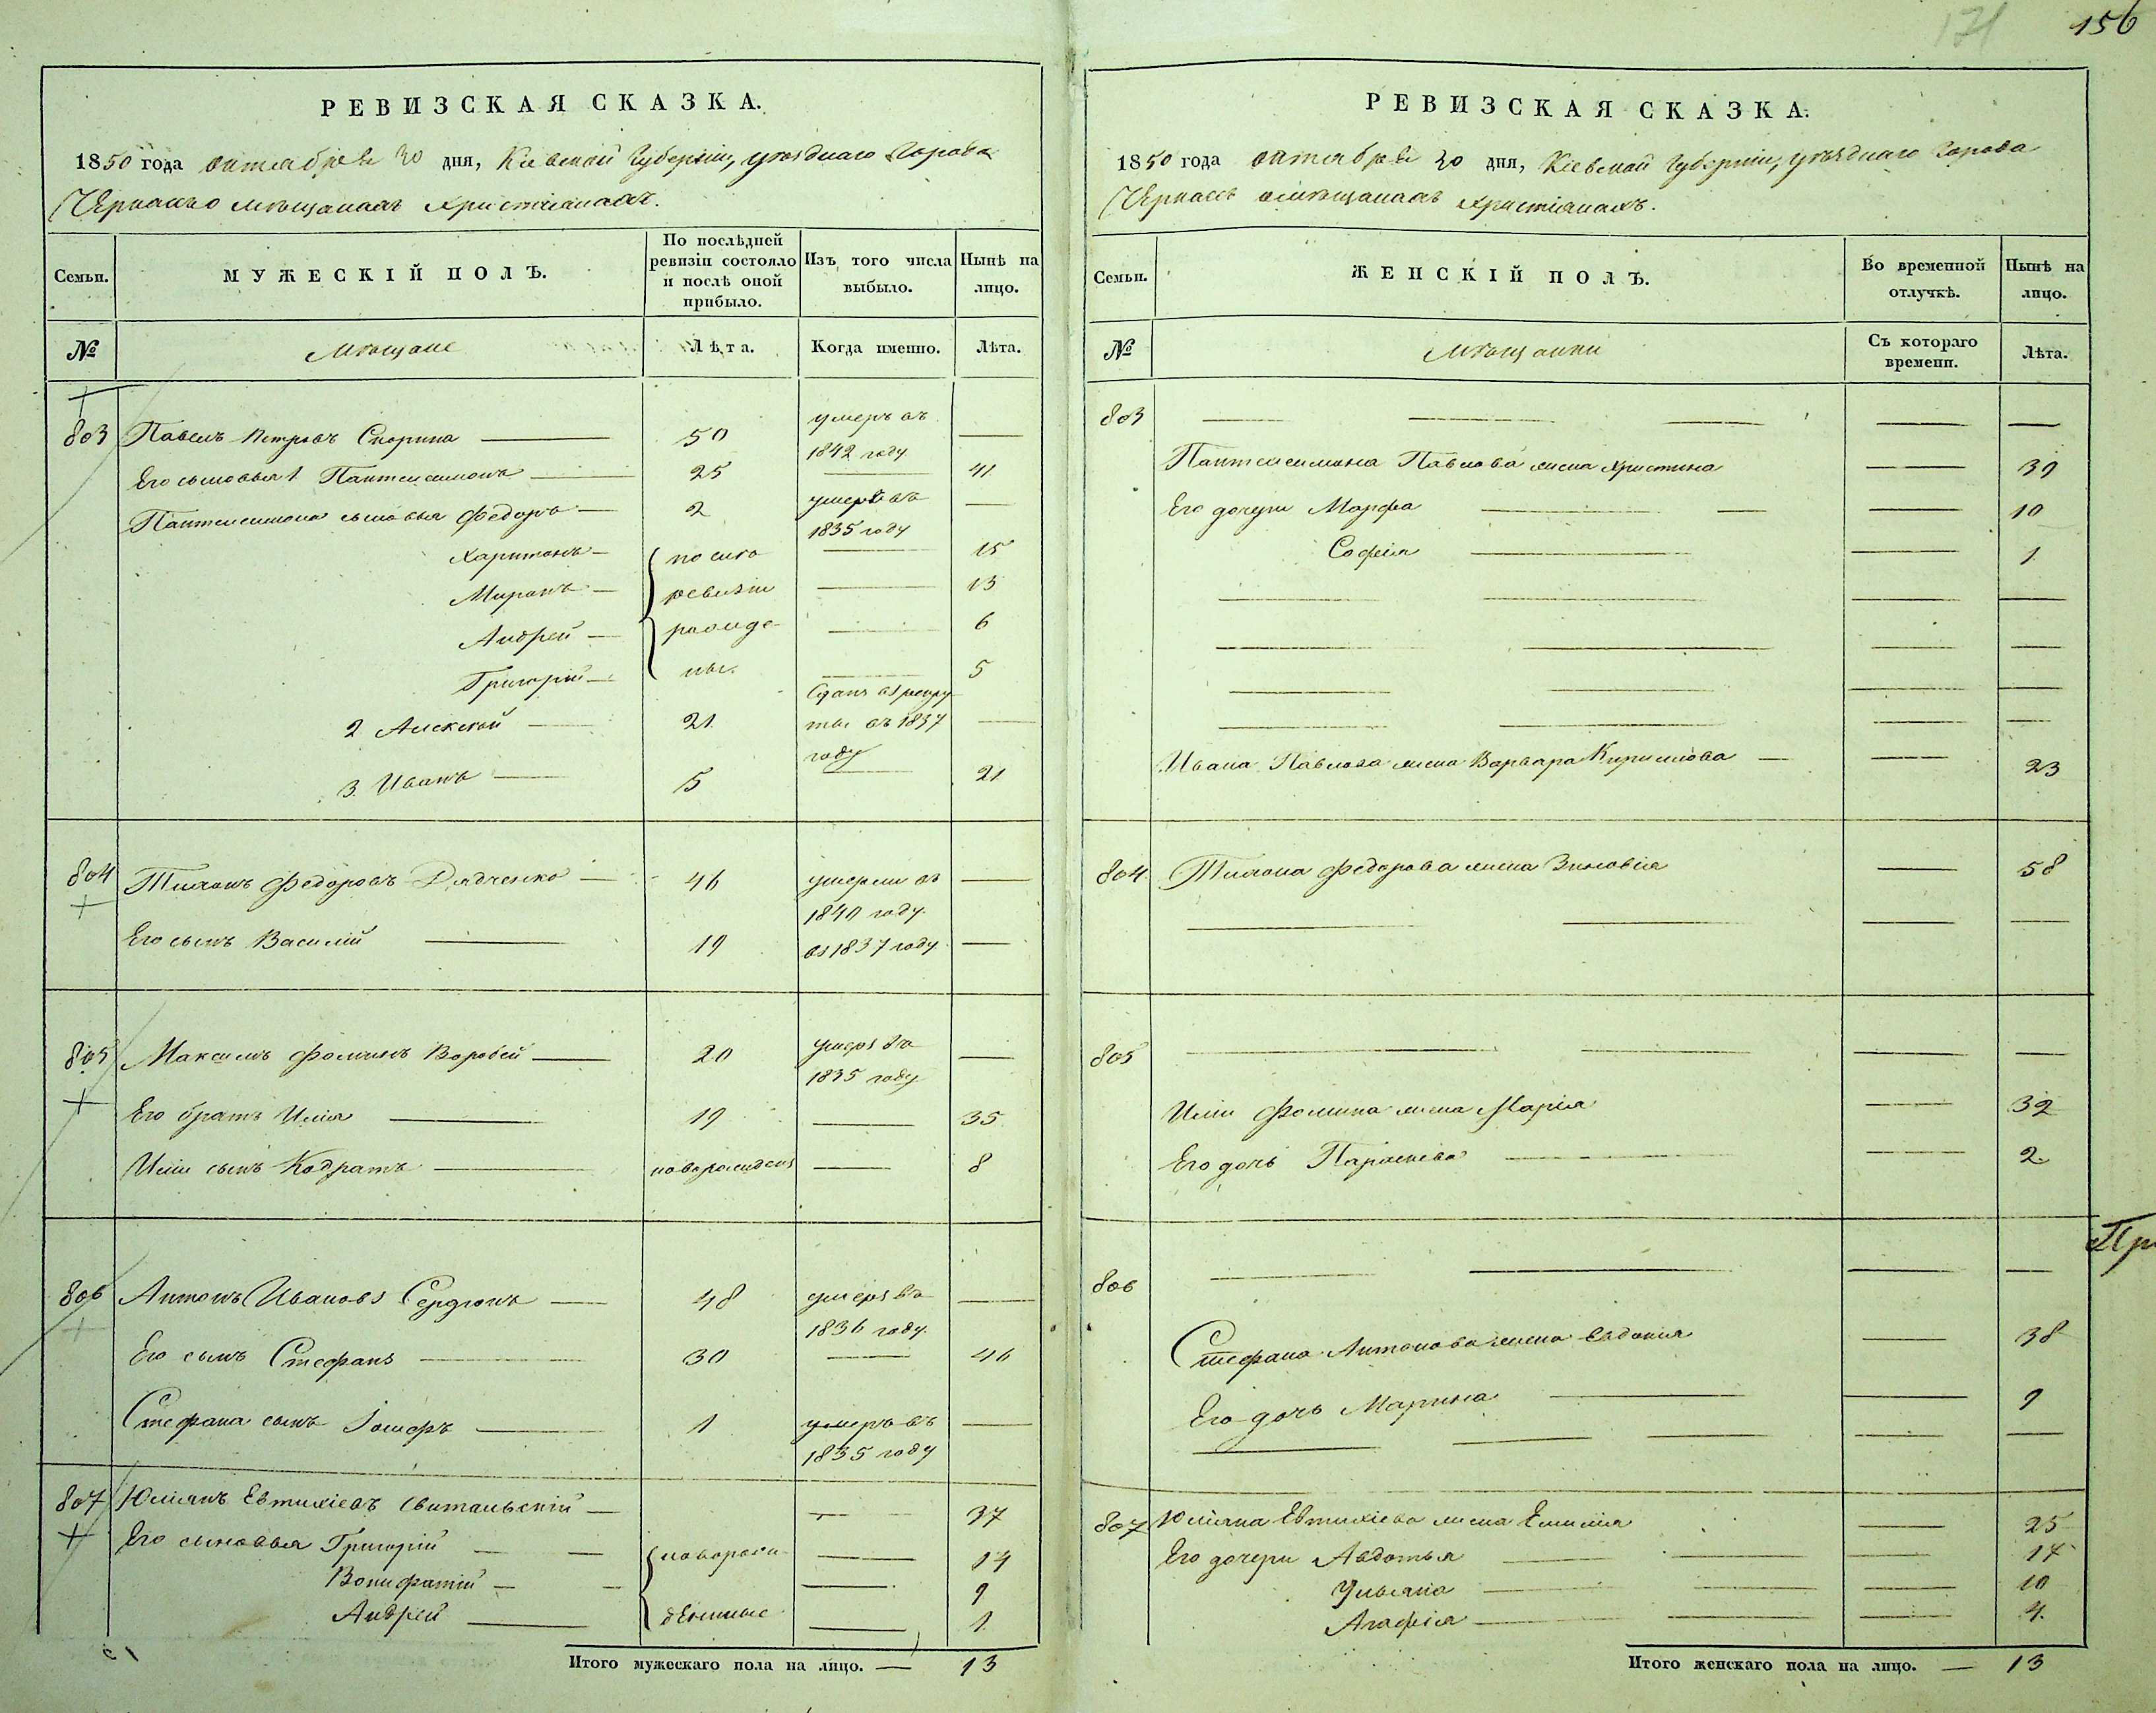 171 156
РЕВИЗСКАЯ СКАЗКА.
1850 года октября 20 дня, Кіевской Губерніи, уѣзднаго Города
Черкасъ о мѣщанахъ христіанахъ.
Семьи.
МУЖЕСКІЙ ПОЛЪ.
По послѣдней ревизіи состояло и послѣ оной прибыло.
Изъ того числа выбыло.
Нынѣ на лицо.
№ Мѣщане Лѣта. Когда именно. Лѣта.
803 Павелъ Петровъ Скорина — 50 умеръ въ 1842 году —
Его сыновья 1 Пантелеимонъ — 25 — 41
Пантелеимона сыновья Федоръ — 2 умеръ въ 1835 году —
Харитонъ — после — 15
Миронъ — ревизіи — 13
Андрей — рожде — 6
Григорій — ны. — 5
2 Алексѣй — 21 Сданъ въ рекруты въ 1837 году —
3. Иванъ — 5 — 21
804 Тихонъ Федоровъ Дядченко — 46 умерли въ 1840 году. —
Его сынъ Василій — 19 въ 1837 году —
805 Максимъ Фоминъ Воробей — 20 умеръ въ 1835 году —
Его братъ Илія — 19 — 35
Иліи сынъ Кодратъ — новорожденъ — 8
806 Антонъ Ивановъ Сердюкъ — 48 умеръ въ 1836 году. —
Его сынъ Стефанъ — 30 — 46
Стефана сынъ Іосифъ — 1 умеръ въ 1835 году —
807 Юліянъ Евтихіевъ Свитальскій — — 37
Его сыновья Григорій — — новорож — 14
Вонифатій — — — 9
Андрей — денные — 1
Итого мужескаго пола на лицо. — 13
РЕВИЗСКАЯ СКАЗКА.
1850 года октября 20 дня, Кіевской Губерніи, уѣзднаго Города
Черкасъ о мѣщанахъ христіанахъ.
Семьи.
ЖЕНСКІЙ ПОЛЪ.
Во временной отлучкѣ.
Нынѣ на лицо.
№ Мѣщанки Съ котораго времени. Лѣта.
803 — — — — —
Пантелеимона Павлова жена Христина — 39
Его дочери Марфа — — — 10
Софія — — 1
Ивана Павлова жена Варвара Кирилова — — 23
804 Тихона Федорова жена Зиновія — 58
805 — — — —
Иліи Фомина жена Марія — 32
Его дочь Параскева — — 2
Пр
806 — — — —
Стефана Антонова жена Евдокія — 38
Его дочь Марина — — 9
807 Юліяна Евтихіева жена Емилія — 25
Его дочери Авдотья — — — 14
Ульяна — — — 10
Агафія — — — 4.
Итого женскаго пола на лицо. — 13